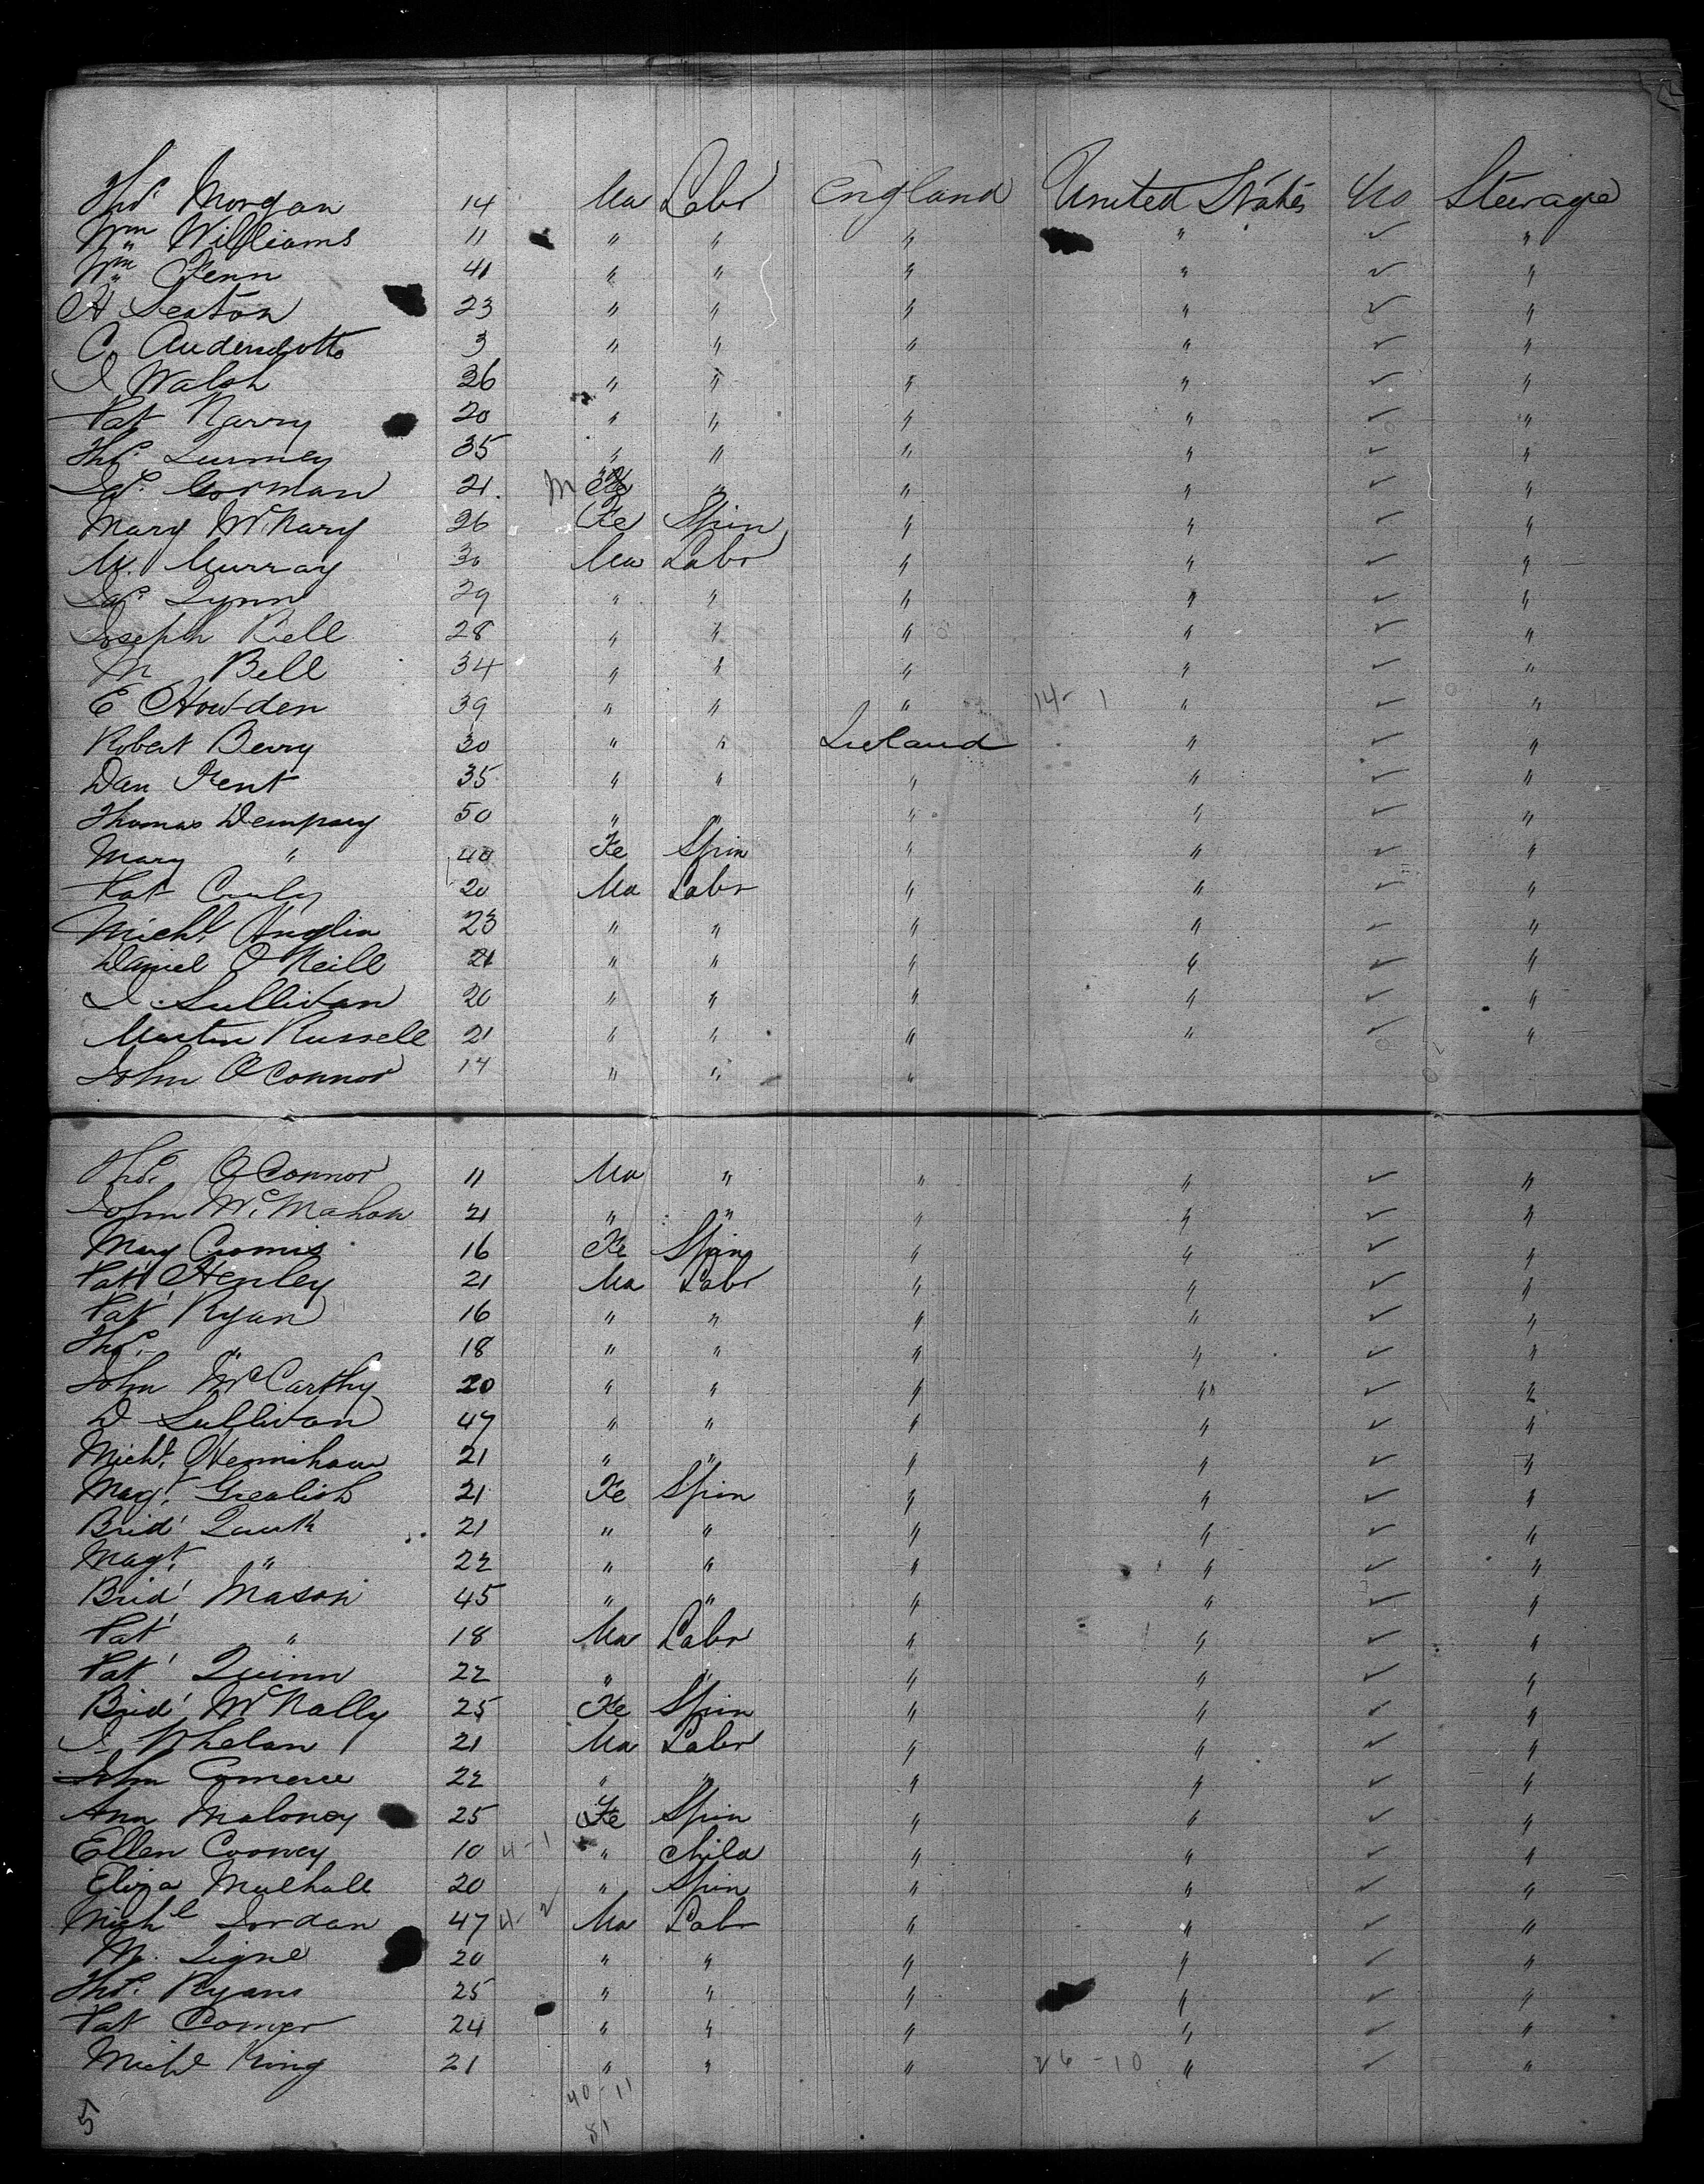 Thos. Morgan 14 Ma Labr England United States No Steerage
Wm Williams 11 " " " " ✓ "
Wm Fenn 41 " " " " ✓ "
H Seaton 23 " " " " ✓ "
C. 3 " " " " ✓ "
J Walsh 36 " " " " ✓ "
Pat Narry 20 " " " " ✓ "
Thos. 35 " " " " ✓ "
Jas. Gorman 21. M " " " ✓ "
Mary McNary 26 Fe Spin " " ✓ "
M. Murray 30 Ma Labr " " ✓ "
Jas. Lynn 29 " " " " ✓ "
Joseph Riell 28 " " " " ✓ "
M Bell 34 " " " " ✓ "
E Howden 39 " " " 14- 1 " ✓ "
Robert Berry 30 " " Ireland " ✓ "
Dan Kent 35 " " " " ✓ "
Thomas Dempsey 50 " " " " ✓ "
Mary " 40 Fe Spin " " ✓ "
Pat 20 Ma Labr " " ✓ "
Michl. Anglin 23 " " " " ✓ "
Daniel O'Neill 21 " " " " ✓ "
J. Sullivan 20 " " " " ✓ "
Martin Russell 21 " " " " ✓ "
John O'Connor 14 " " "
Thos. O'Connor 11 Ma " " " ✓ "
John McMahon 21 " " " " ✓ "
Mary Cromis 16 Fe Spin " " ✓ "
Pat' Henley 21 Ma Labr " " ✓ "
Pat' Ryan 16 " " " " ✓ "
Thos. " 18 " " " " ✓ "
John McCarthy 20 " " " " ✓ "
D Sullivan 47 " " " " ✓ "
Michl. 21 " " " " ✓ "
Magt. Grealish 21 Fe Spin " " ✓ "
Brid' 21 " " " " ✓ "
Magt. " 22 " " " " ✓ "
Brid' Mason 45 " " " " ✓ "
Pat' " 18 Ma Labr " " ✓ "
Pat' Quinn 22 " " " " ✓ "
Brid' McNally 25 Fe Spin " " ✓ "
J. Whelan 21 Ma Labr " " ✓ "
John 22 " " " " ✓ "
Ann Maloney 25 Fe Spin " " ✓ "
Ellen Cooney 10 4-1 " Child " " ✓ "
Eliza Mulhall 20 " Spin " " ✓ "
Michl Jordan 47 4- 2 Ma Labr " " ✓ "
M. 20 " " " " ✓ "
Thos. Ryans 25 " " " " ✓ "
Pat Comer 24 " " " " ✓ "
Michl King 21 " " " 26-10 " ✓ "
40-11
5 81